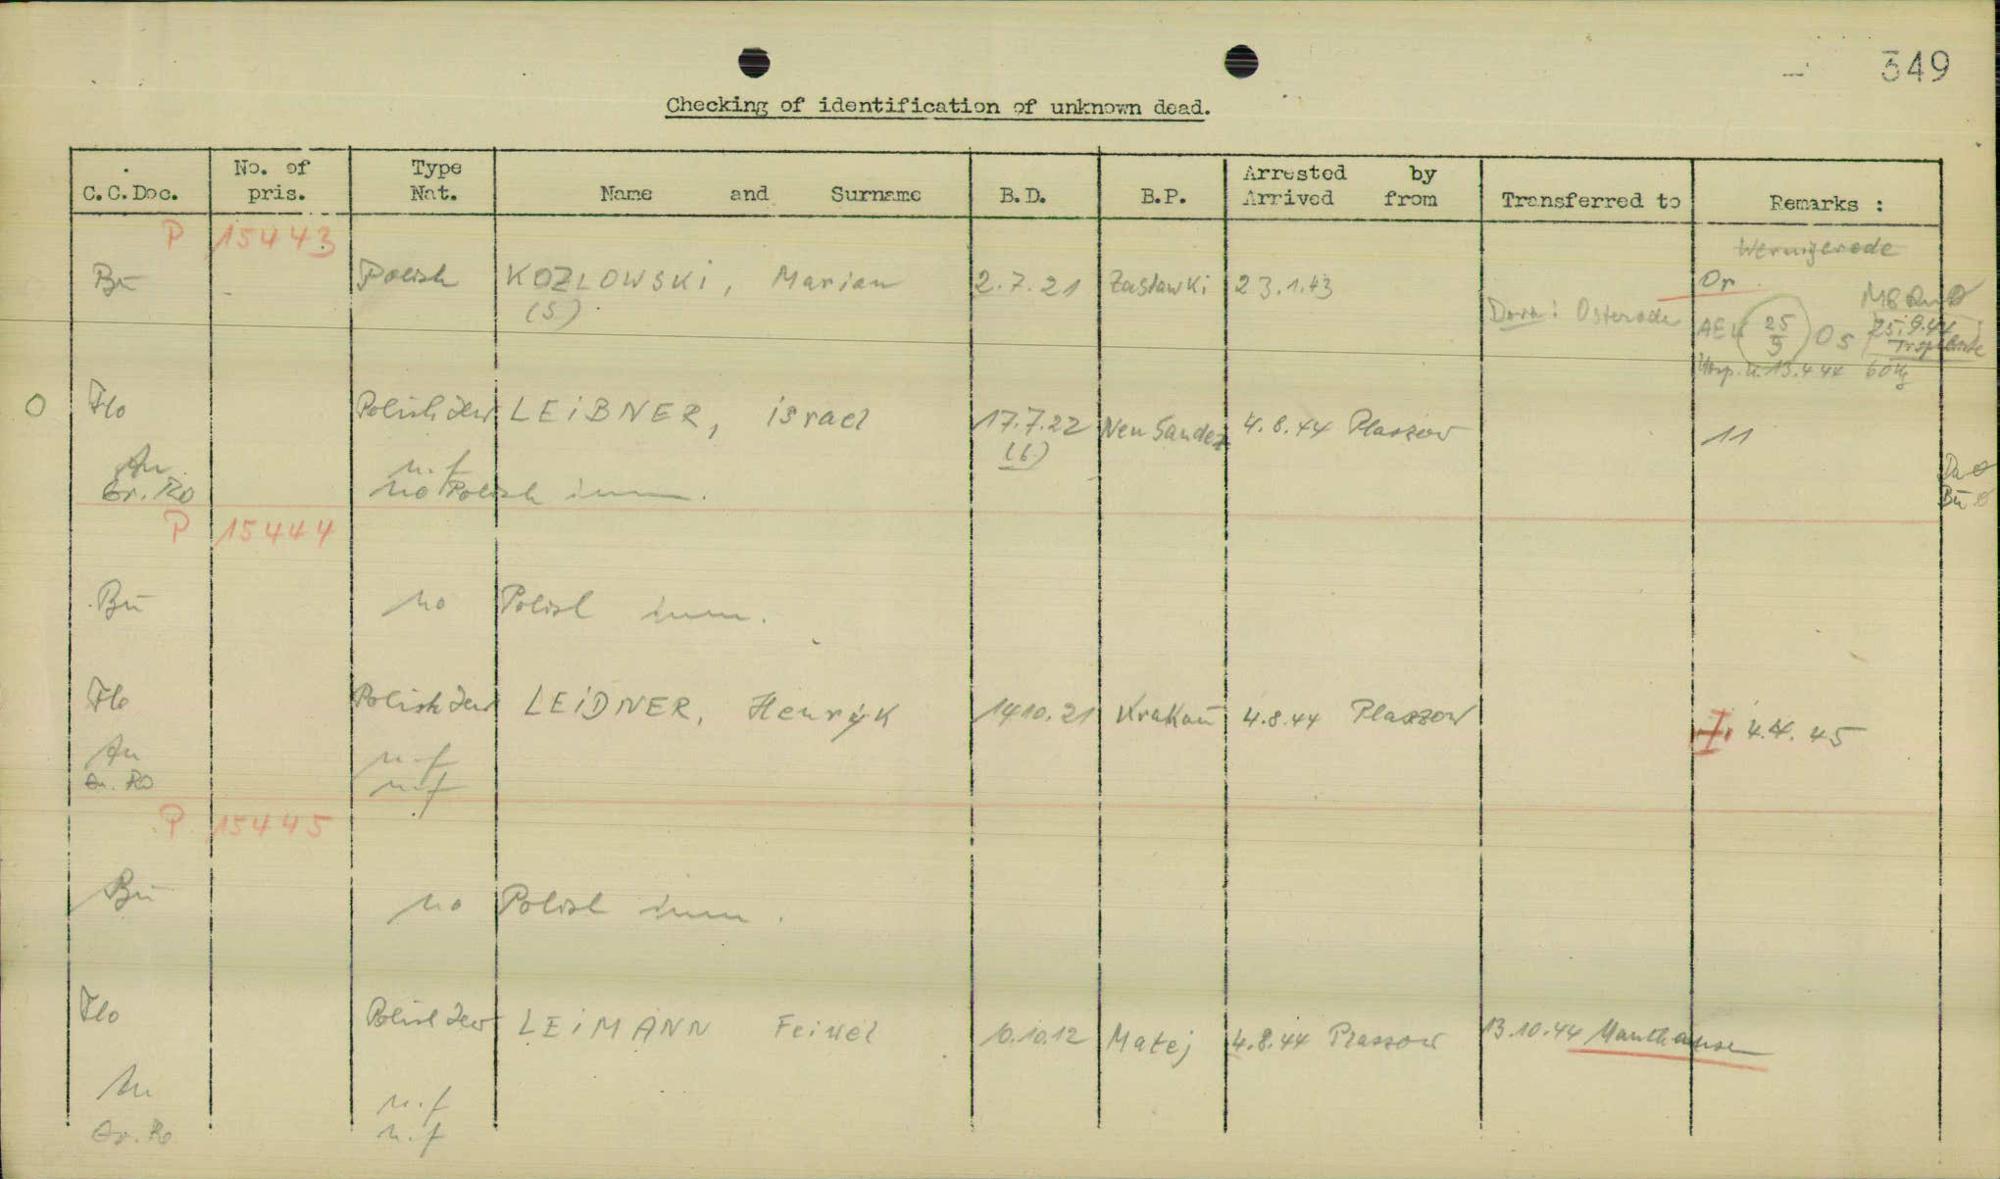 349
Checking of identification of unknown dead.
C.C.Doc. No. of pris. Type Nat. Name and Surname B.D. B.P. Arrested by Arrived from Transferred to Remarks :
P 15443
Wernigerode
Bu Polish KOZLOWSKI, Marian 2.7.21 Zaslawki 23.1.43 Or
(S) Dora: Osterode
25/9 Os 25.9.44
13.4.44
Flo Polish Jew LEIBNER, israel 17.7.22 Neu Sandez 4.8.44 Plaszow 11
(6)
Au n.f
Gr. Ro no Polish inm.
Da
Bu
P 15444
Bu no Polish inm.
Flo Polish Jew LEIDNER, Henryk 14.10.21 Krakau 4.8.44 Plaszow 4.4.45
Au n.f
Gr. Ro n.f
P 15445
Bu no Polish inm.
Flo Polish Jew LEIMANN Feivel 10.12 Matej 4.8.44 Plaszow 13.10.44 Mauthausen
Au n.f
Gr. Ro n.f